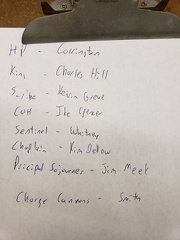 HP - Corrington
King - Charles Hill
Scribe - Kevin Grove
CotH - Ike Spencer
Sentinel - Whitney
Chaplin - Kim Delow
Principal Sojourner - Jim Meek
Charge Cannons - Smith